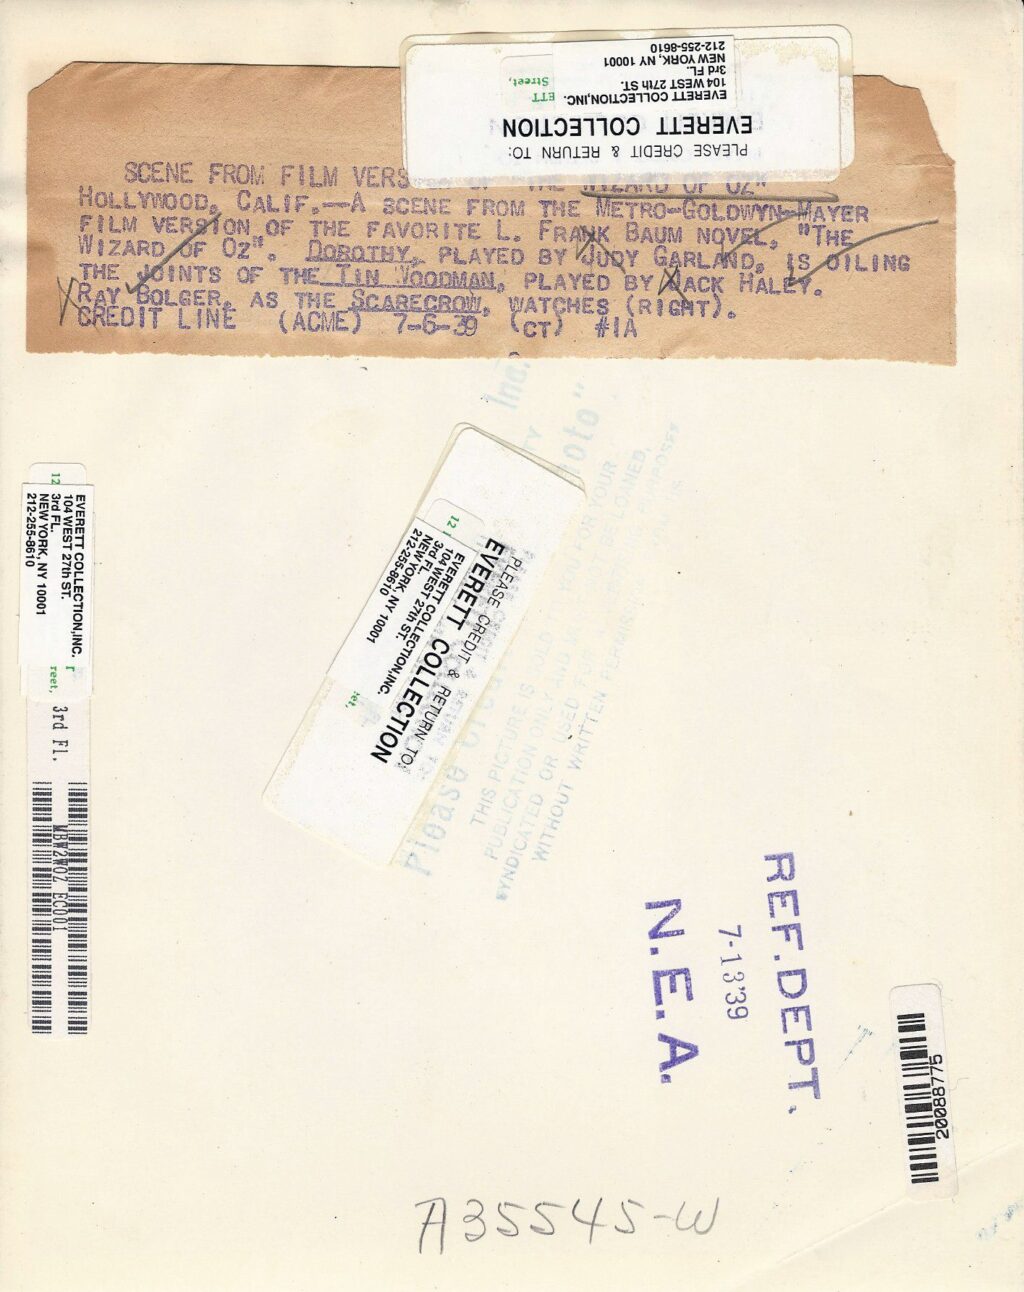 PLEASE CREDIT & RETURN TO:
EVERETT COLLECTION
EVERETT COLLECTION,INC.
104 WEST 27th ST.
3rd FL.
NEW YORK, NY 10001
212-255-8610
ETT
Street,
SCENE FROM FILM VERS OF "THE WIZARD OF OZ"
HOLLYWOOD, CALIF.—A SCENE FROM THE METRO-GOLDWYN-MAYER
FILM VERSION OF THE FAVORITE L. FRANK BAUM NOVEL, "THE
WIZARD OF OZ". DOROTHY, PLAYED BY JUDY GARLAND, IS OILING
THE JOINTS OF THE TIN WOODMAN, PLAYED BY JACK HALEY.
RAY BOLGER, AS THE SCARECROW, WATCHES (RIGHT).
CREDIT LINE (ACME) 7-6-39 (CT) #1A
PLEASE CREDIT & RETURN TO:
EVERETT COLLECTION
EVERETT COLLECTION,INC.
104 WEST 27th ST.
3rd FL.
NEW YORK, NY 10001
212-255-8610
Inc.
Please
THIS PICTURE IS SOLD TO YOU FOR YOUR
PUBLICATION ONLY AND NOT BE LOANED,
SYNDICATED OR USED FOR PURPOSES
WITHOUT WRITTEN
EVERETT COLLECTION,INC.
104 WEST 27th ST.
3rd FL.
NEW YORK, NY 10001
212-255-8610
12
reet,
3rd Fl.
MBW2WOZ EC001
REF. DEPT.
7-13'39
N.E.A.
20088775
A35545-W